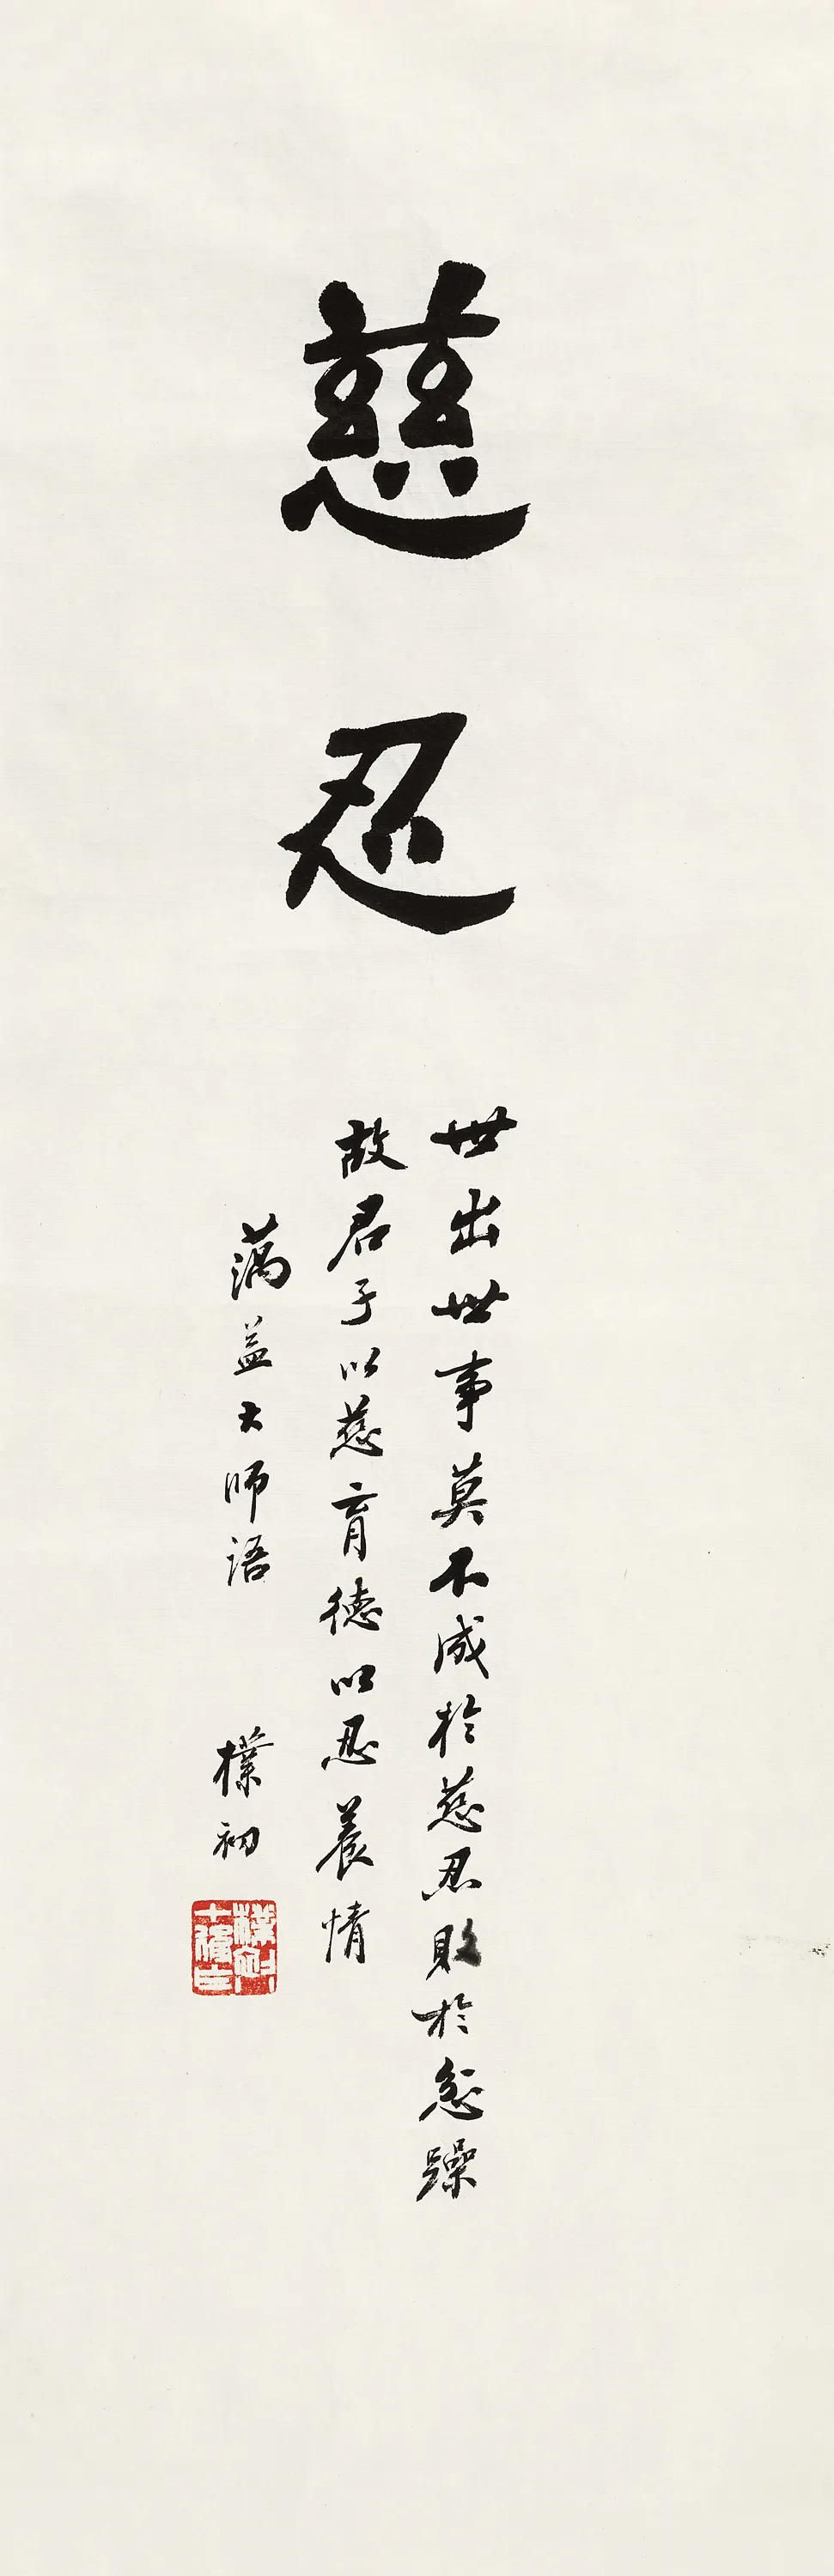 慈忍
世出世事莫不成於慈忍敗於忿躁
故君子以慈育德以忍養情
蕅益大师语
樸初